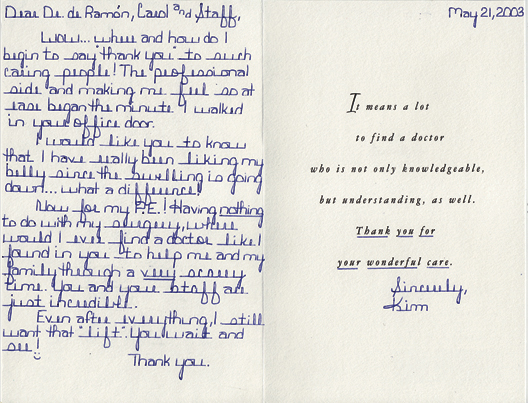 Dear Dr. de Ramón, Carol and Staff,
Wow... where and how do I
begin to say "thank you" to such
caring people! The professional
side and making me feel so at
ease began the minute I walked
in your office door.
I would like you to know
that I have really been liking my
belly since the swelling is going
down... what a difference!
Now for my P.E.! Having nothing
to do with my surgery, where
would I ever find a doctor like I
found in you to help me and my
family through a very scarey
time. You and your staff are
just incredible.
Even after everything, I still
want that "lift". You wait and
see!
Thank you.
May 21, 2003
It means a lot
to find a doctor
who is not only knowledgeable,
but understanding, as well.
Thank you for
your wonderful care.
Sincerely,
Kim